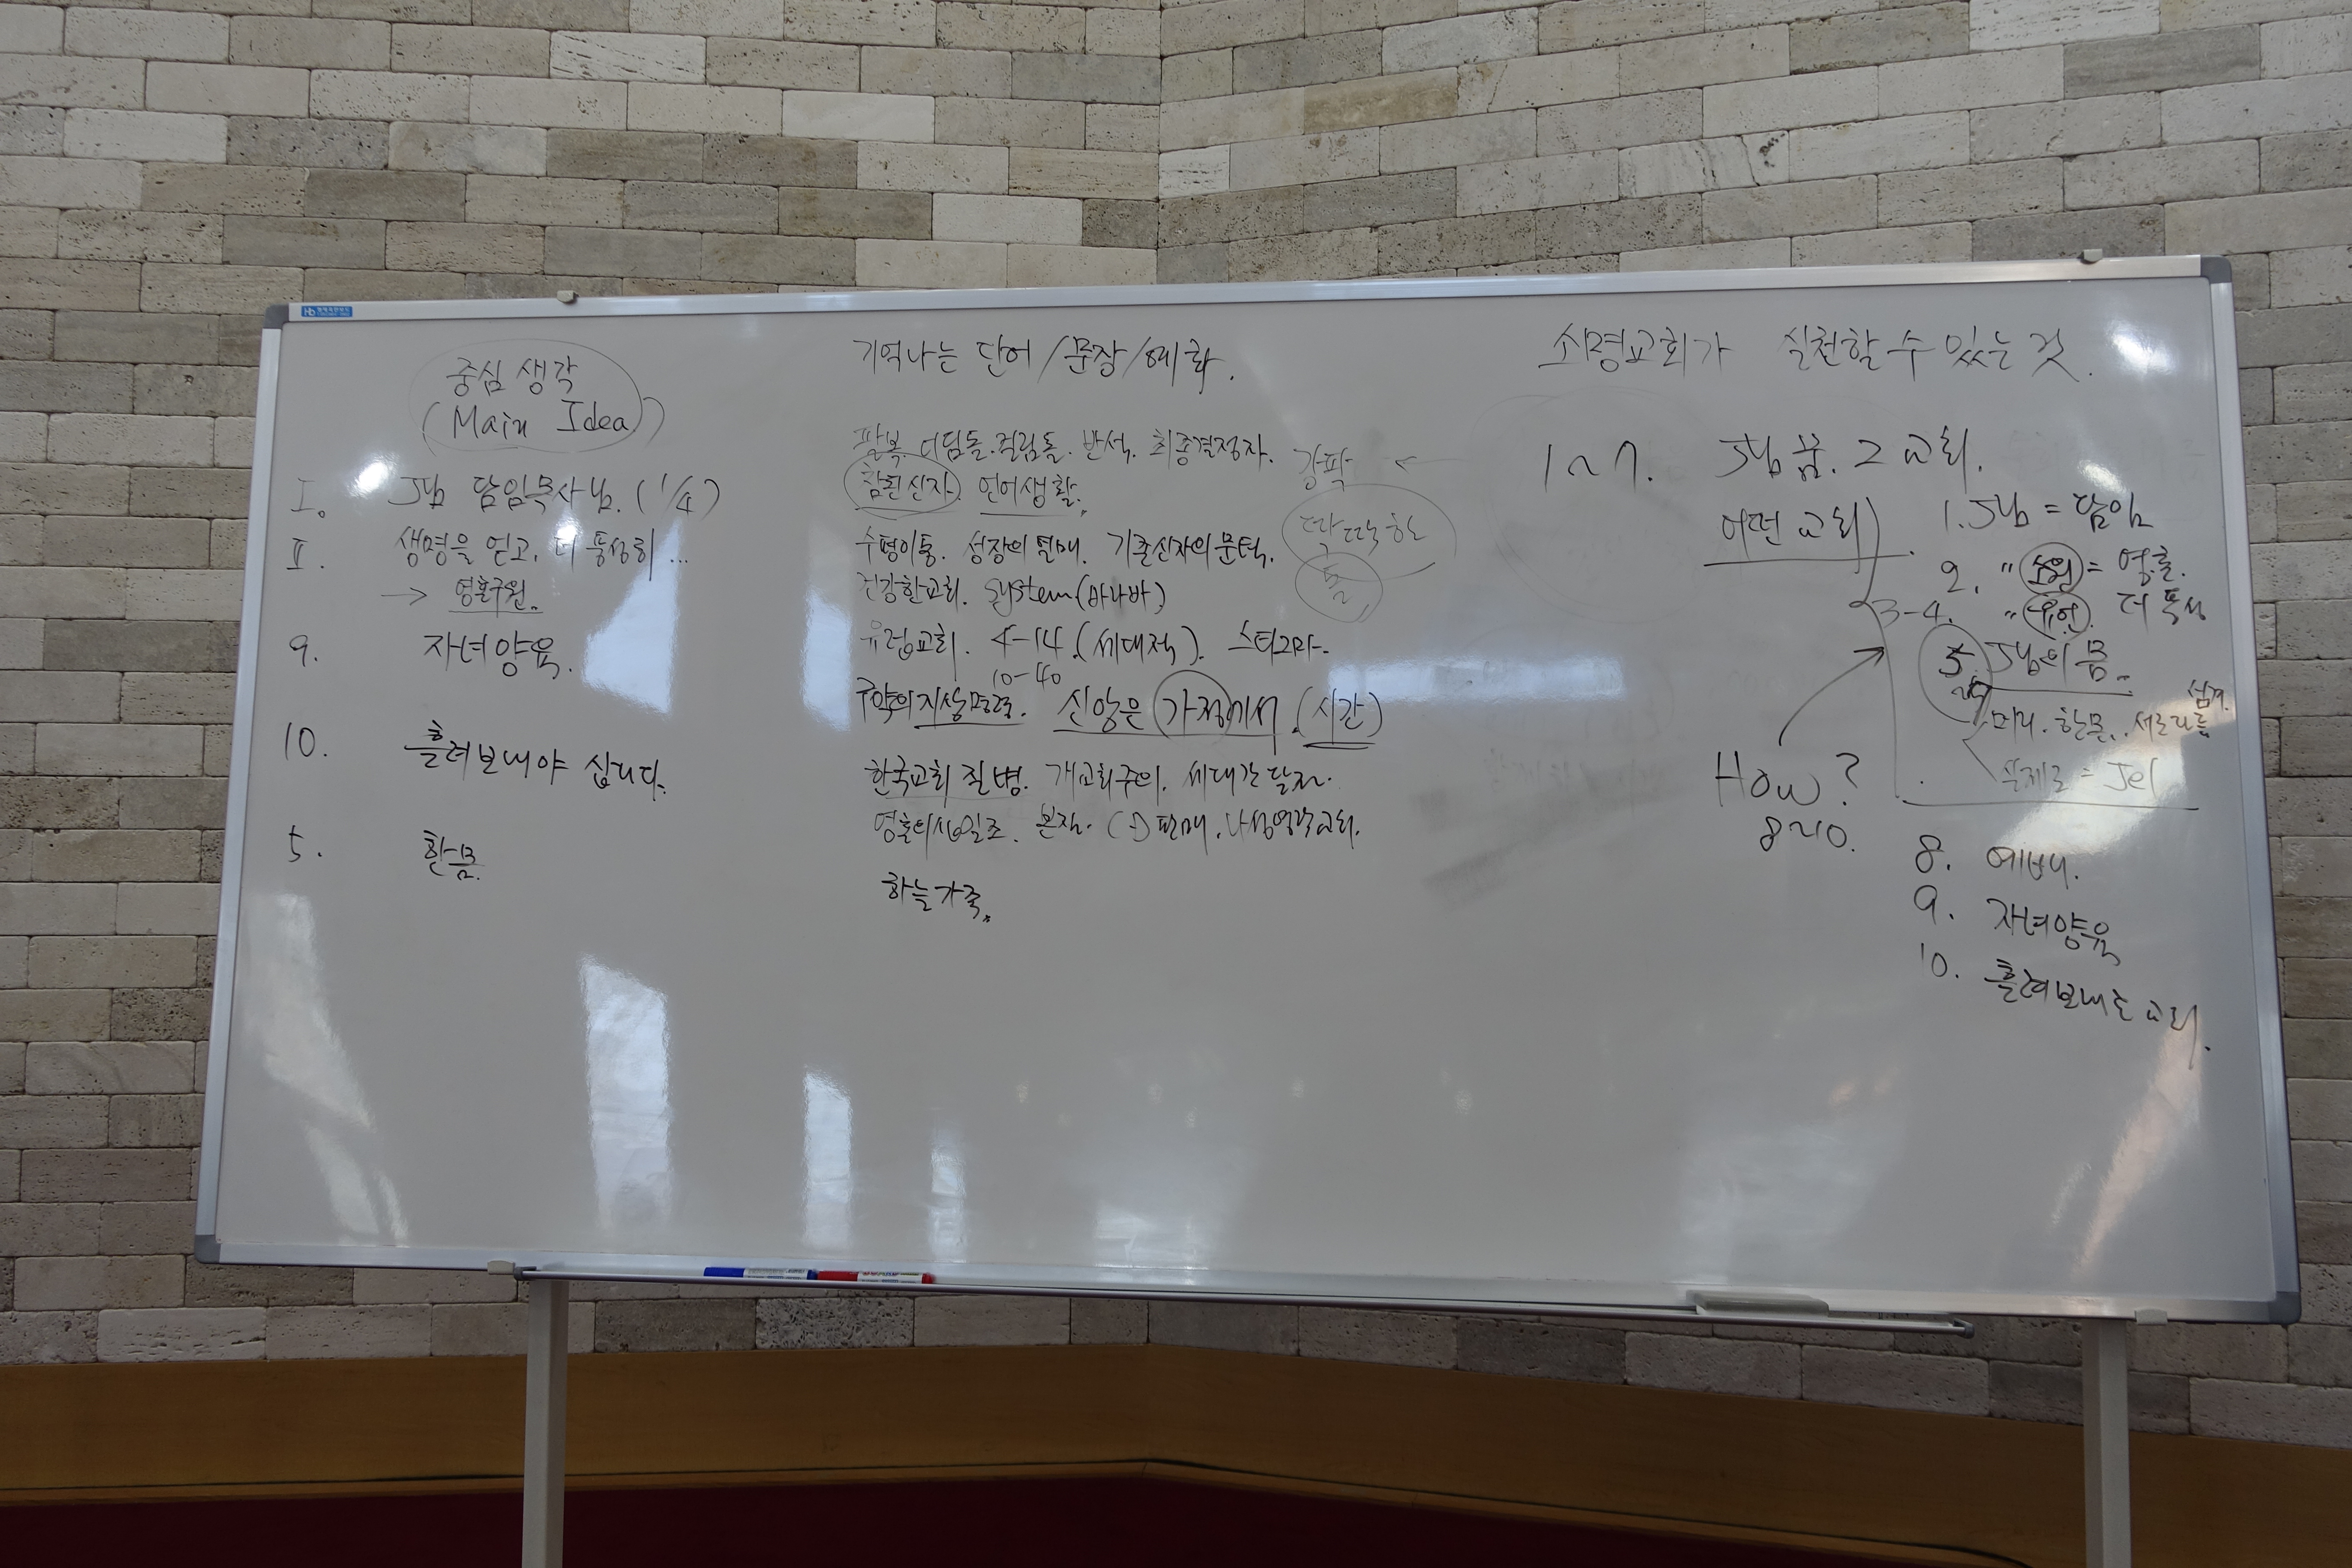 중심 생각
(Main Idea)
I. J님 담임목사님. (1/4)
II. 생명을 얻고, 더 풍성히...
→ 영혼구원.
9. 자녀양육.
10. 흘려보내야 삽니다.
5. 한몸.
기억나는 단어/문장/예화.
팔복. 디딤돌. 걸림돌. 반석. 최종결정자. 강팍
참된신자. 언어생활.
수평이동. 성장의 열매. 기존신자의 문턱. 딱딱한
건강한교회. System (바나바) 돌
유럽교회. 4-14. (세대적). 스티그마.
10-40
구약의 지상명령. 신앙은 가정에서. (시간)
한국교회 질병. 개교회주의. 세대간 단절.
영혼의 십일조. 본질. 판매. 나성영락교회.
하늘가족.
소명교회가 실천할 수 있는 것.
1~7. J님 꿈. 그 교회.
어떤 교회
1. J님 = 담임
2. " 소원 = 영혼.
3-4. " 더 풍성
5 J님의 몸.
머리. 한몸. 서로 섬겨.
How?
8~10.
8. 예배.
9. 자녀양육
10. 흘려보내는 교회.